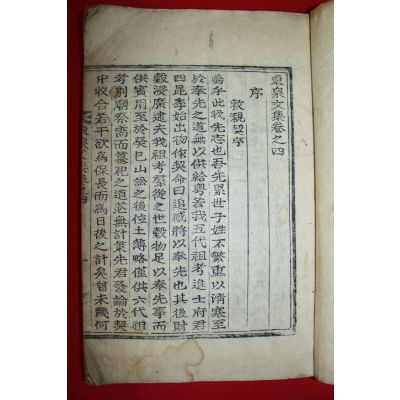 東泉文集卷之四
序
敦親契序
嗚乎此我先志也吾先累世子姓不繁重以淸寒至
於奉先之道無以供給粤若我五代祖考進士府君
四昆季始出物作契命曰追感將以奉先也其後財
穀浸廣建夫我祖考羣從之世穀物足以奉先亭而
供賓用至於癸巳山訟之後位土薄略僅供六代祖
考別廟祭需而墓祀之道茫無計策先君發論於契
中收合若干欲爲保長而爲日後之計矣曾未幾何
東泉文集卷之四